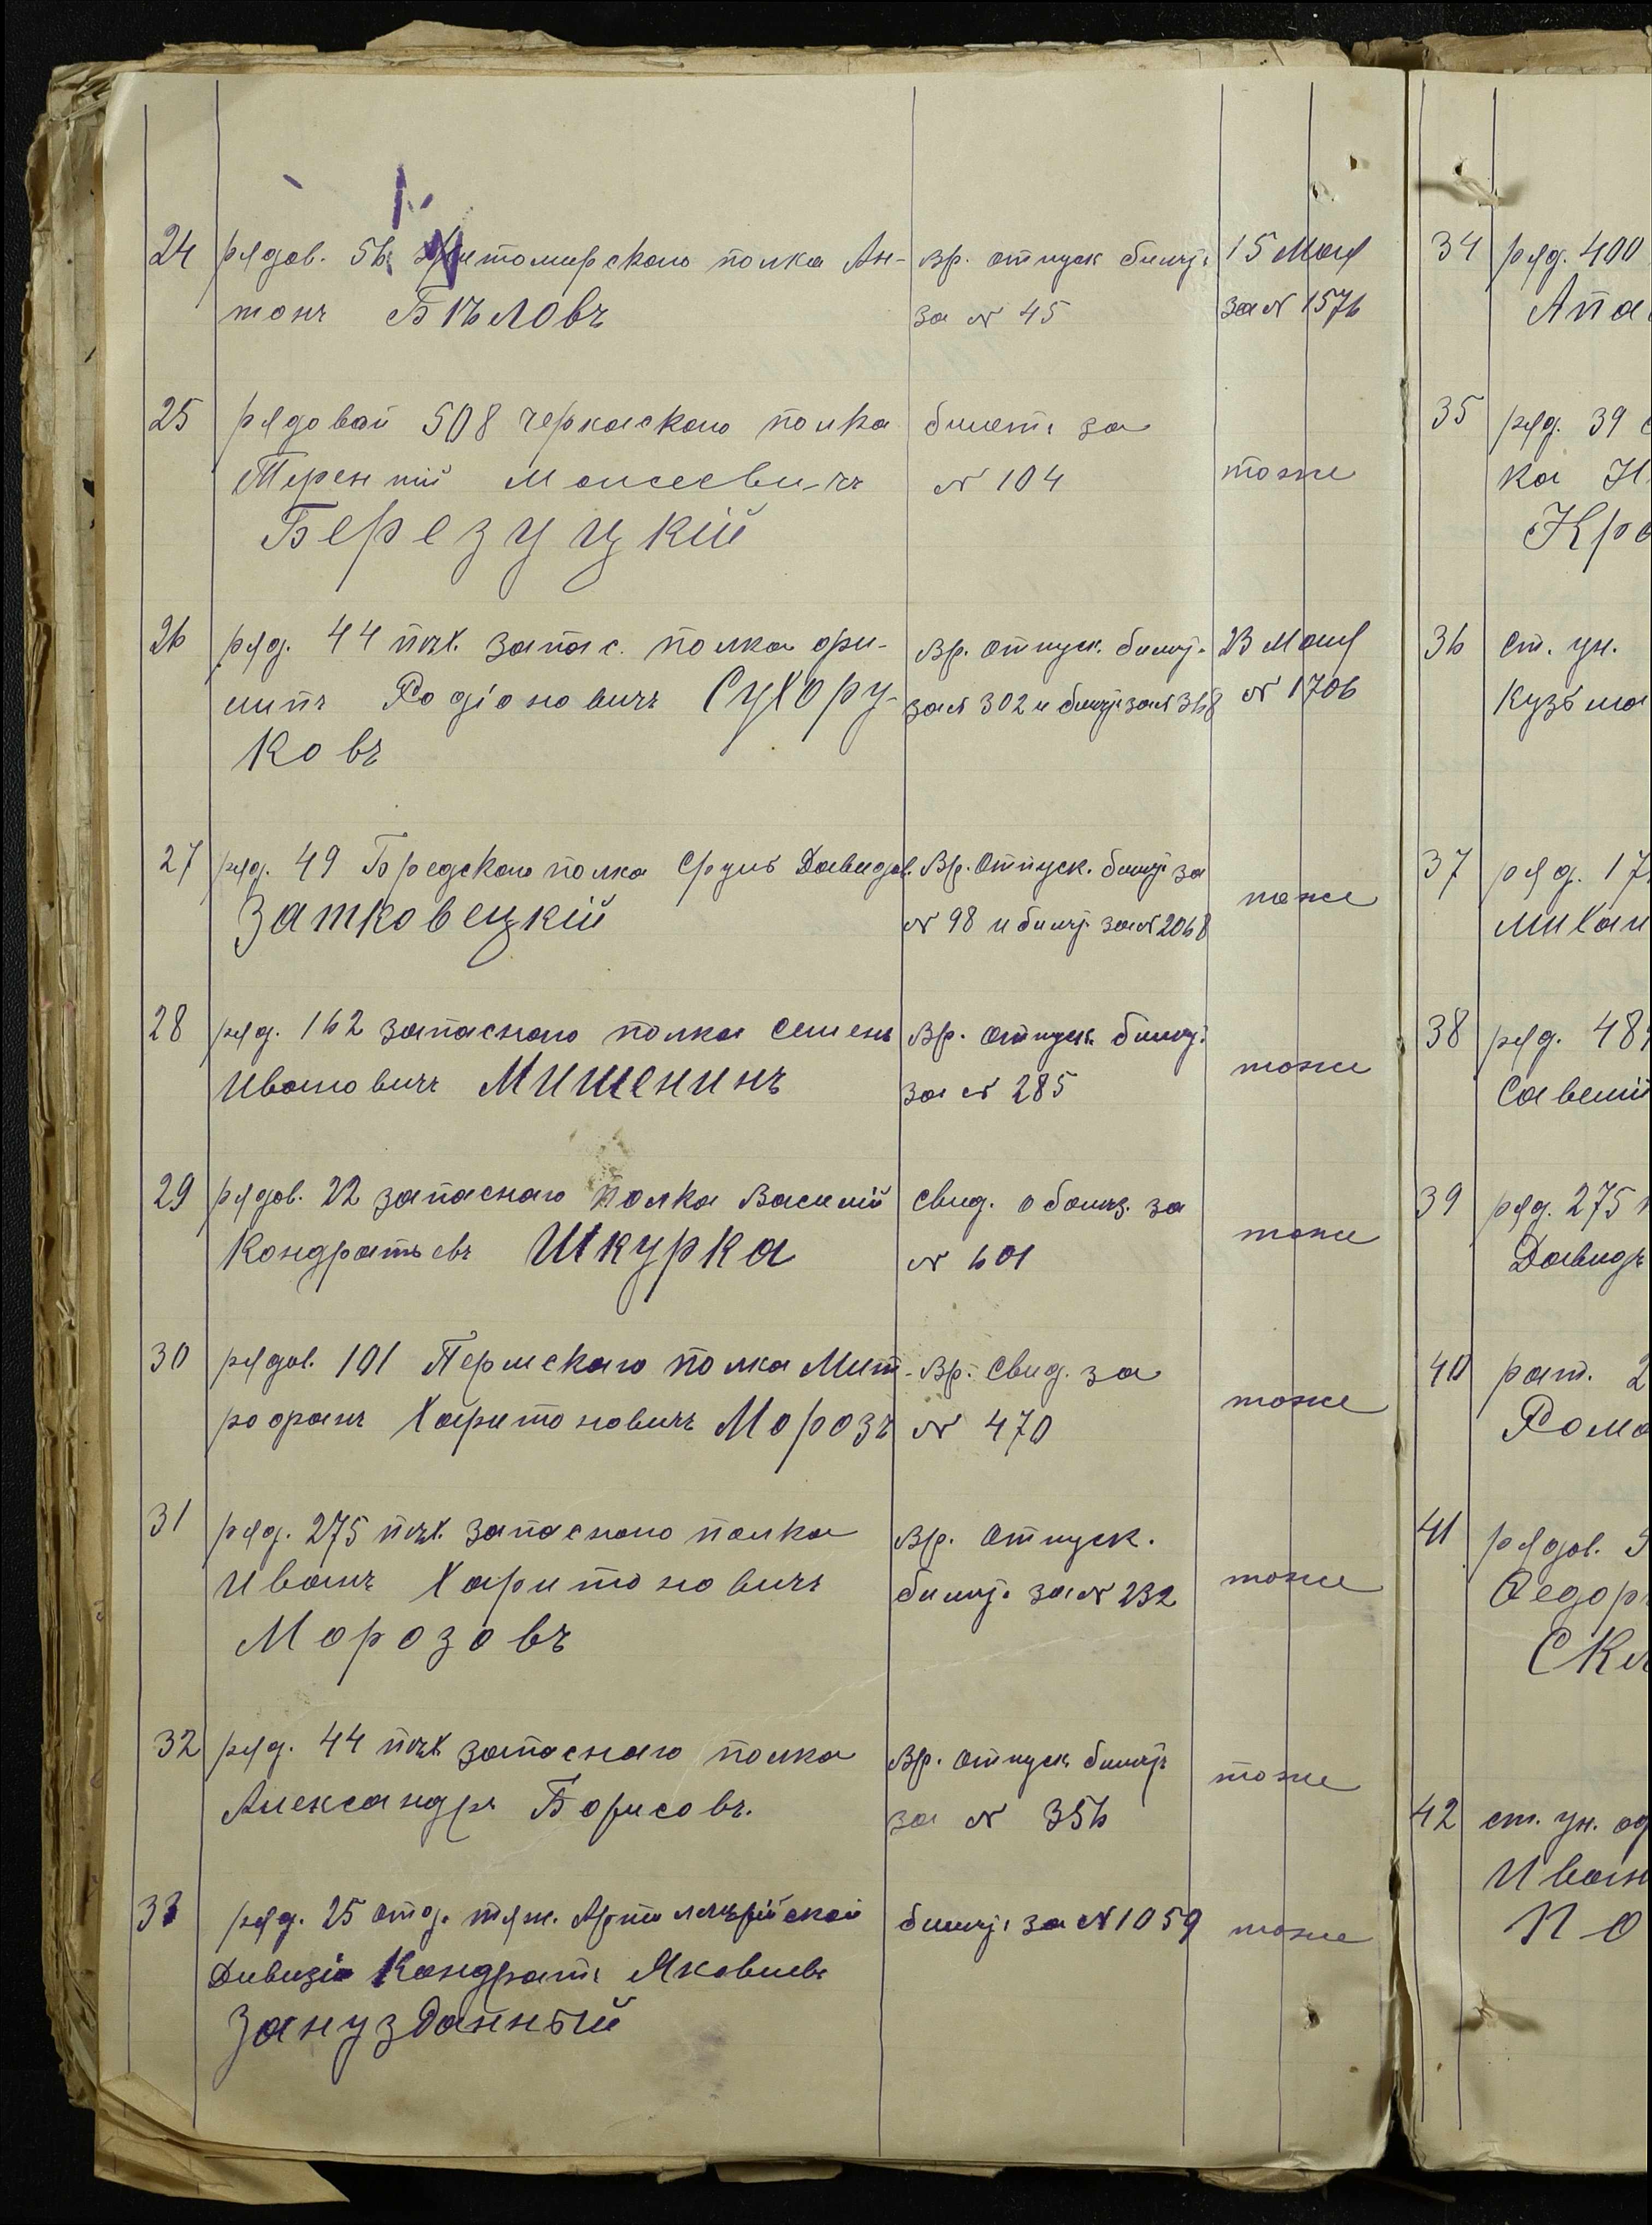 24 рядов. 56 Житомирскаго полка Ан- вр. отпуск билет. 15 Мая
тонъ Бѣловъ за № 45 за № 1576
25 рядовой 508 черкаскаго полка билетъ за
Терентій Моисеевичъ № 104 тоже
Березуцкій
26 ряд. 44 пѣх. запас. полка Фи- вр. отпуск. билет. 23 Мая
липъ Родіоновичъ Сухору- за № 302 и билет за № 368 № 1706
ковъ
27 ряд. 49 Бредскаго полка Сруль Давидов. вр. отпуск. билет за
Затковецкій № 98 и билет за № 2068 тоже
28 ряд. 162 запаснаго полка Семенъ вр. отпуск. билет.
Ивановичъ Мишенинъ за № 285 тоже
29 рядов. 22 запаснаго полка Василій свид. о болѣз. за
Кондратьевъ Шкурка № 601 тоже
30 рядов. 101 Пермскаго полка Мит- вр. свид. за
рофанъ Харитоновичъ Морозъ № 470 тоже
31 ряд. 275 пѣх. запаснаго полка вр. отпуск.
Иванъ Харитоновичъ билет. за № 232 тоже
Морозовъ
32 ряд. 44 пѣх запаснаго полка вр. отпуск. билет
Александръ Борисовъ. за № 356 тоже
33 ряд. 25 отд. тяж. Артиллерійской билет. за № 1059 тоже
Дивизіи Кондратъ Яковлевъ
Занузданный
34 ряд. 400
Апа
35 ряд. 39
ка Н
Кро
36 ст. ун.
Кузьма
37 ряд. 17
Михаи
38 ряд. 48
Савелій
39 ряд. 275
Давидъ
40 рат. 2
Рома
41 рядов.
Федоръ
Скл
42 ст. ун. 
Иван
По